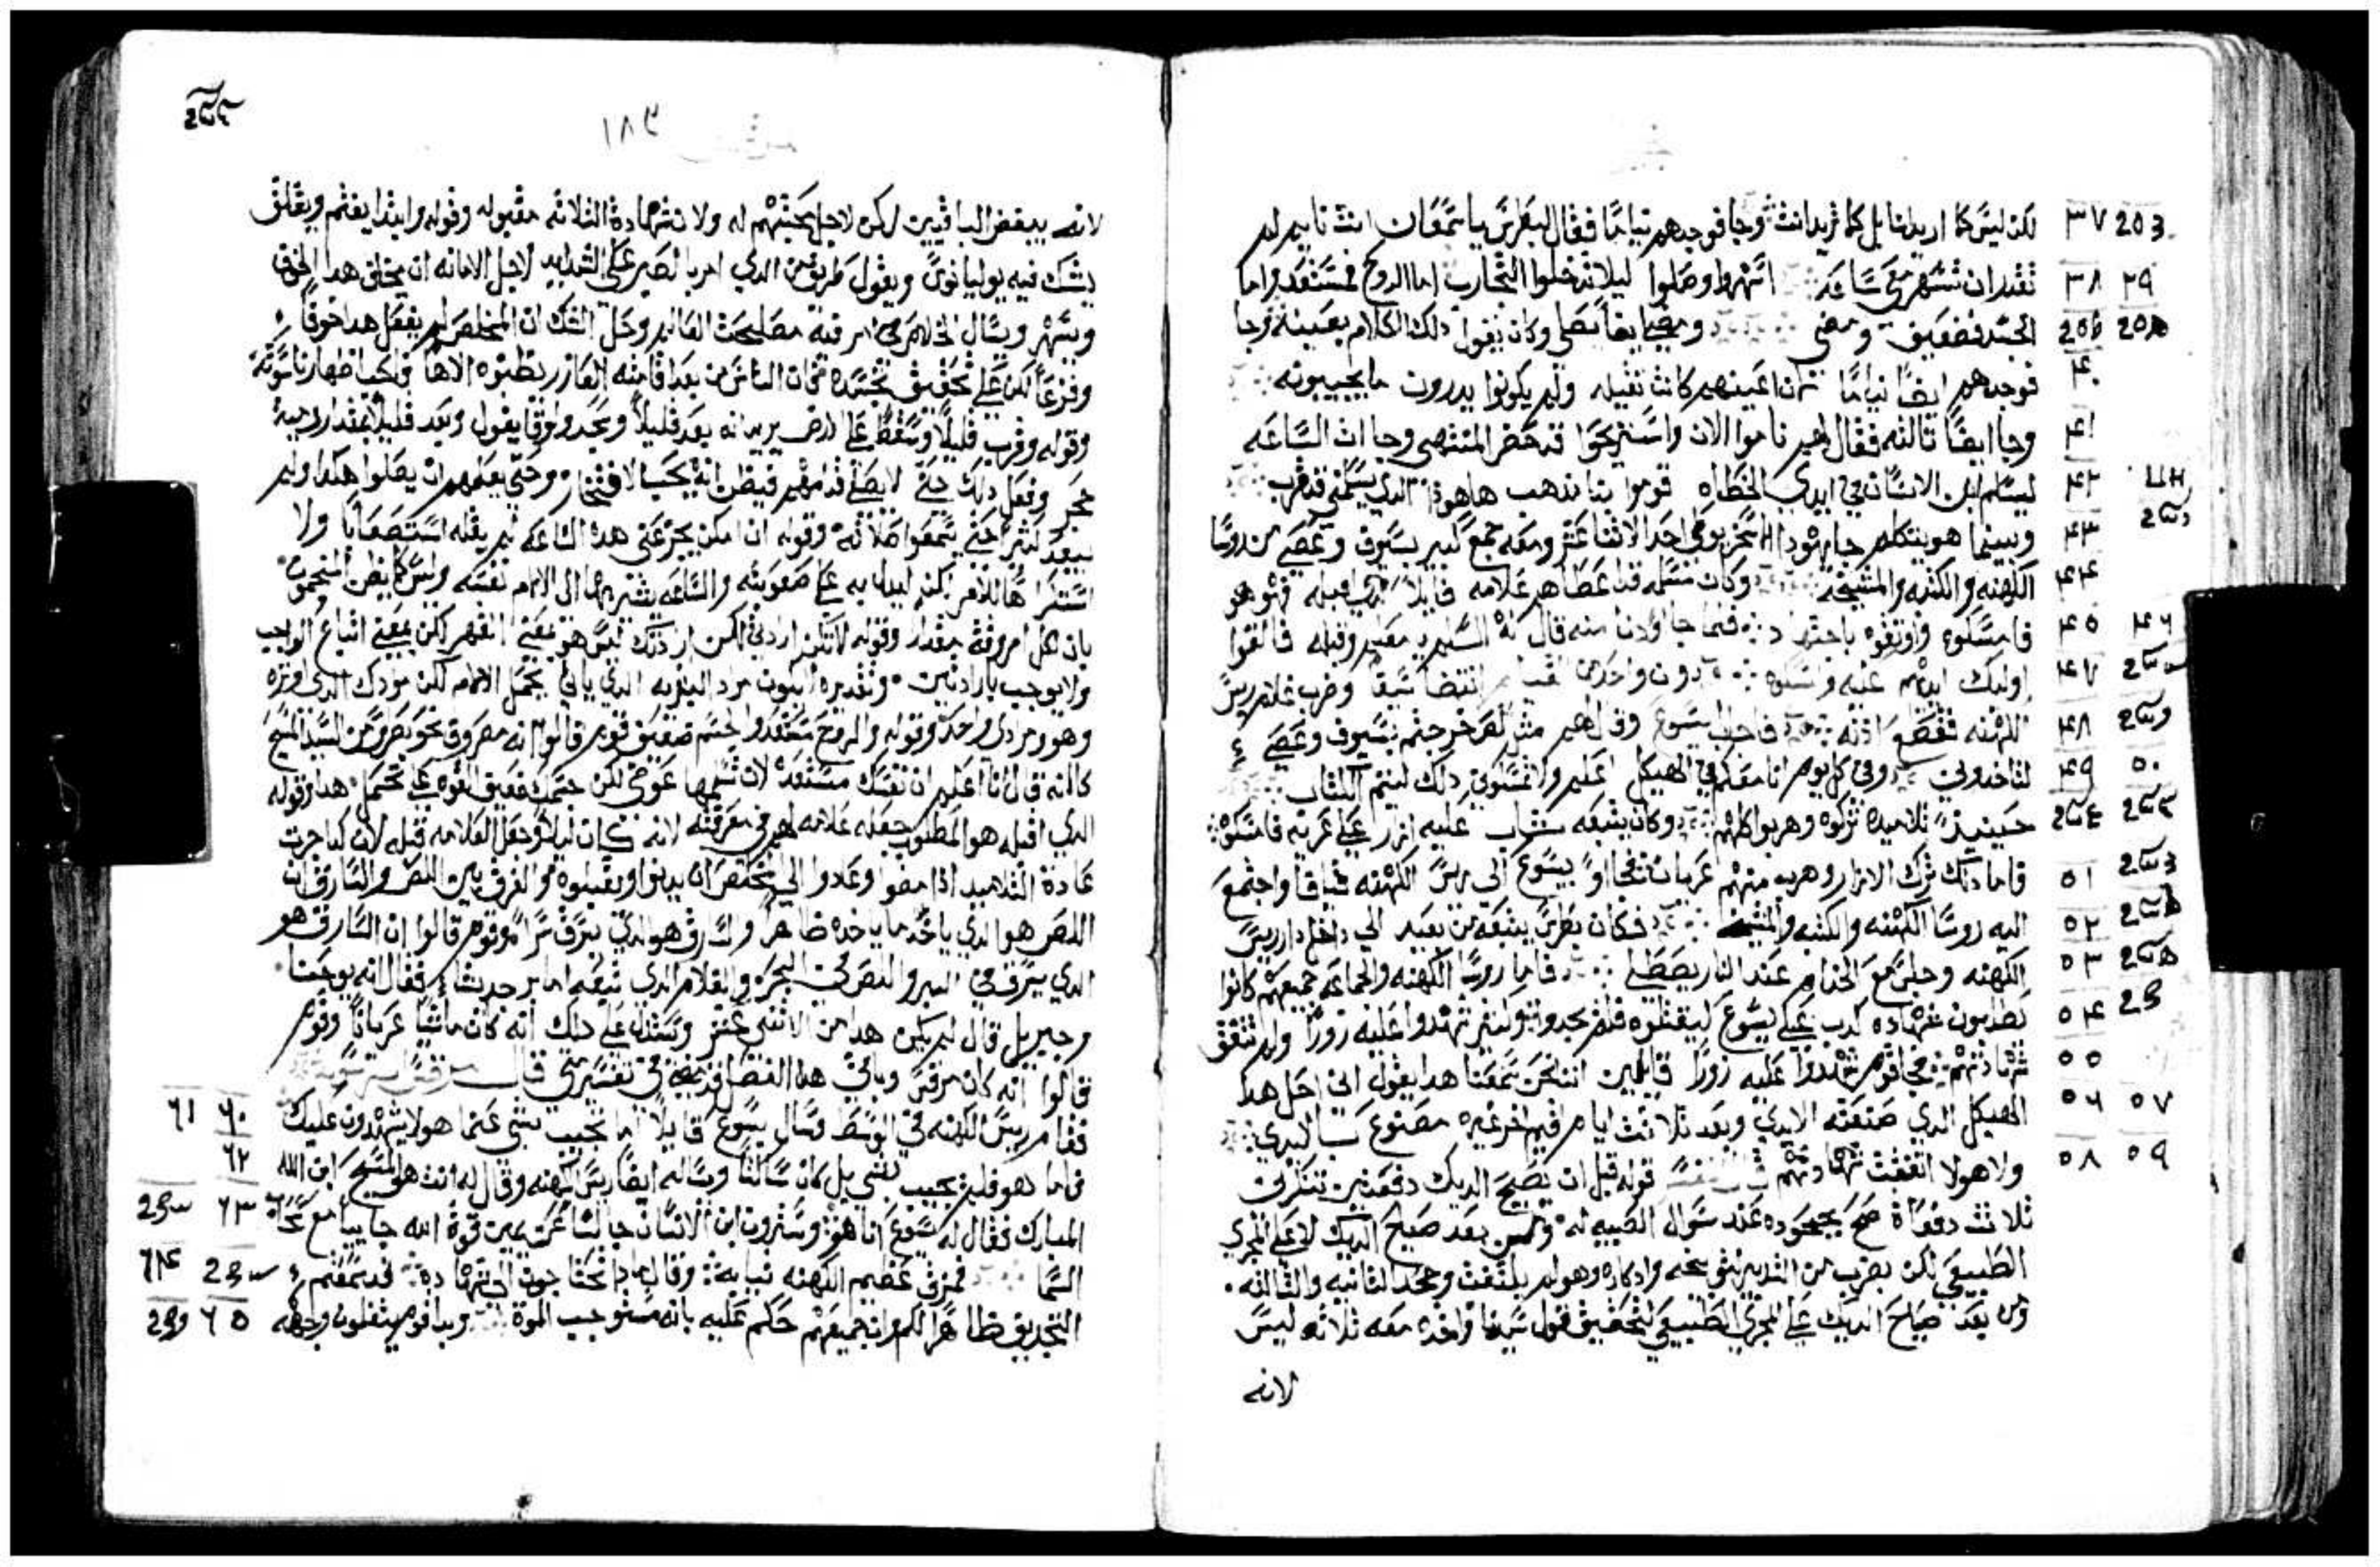 لكن ليس كما اريد انا بل كما تريد انت وجا فوجدهم نياما فقال لبطرس يا سمعان انت نايم لم
تقدر ان تسهر معي ساعه انتهوا وصلوا ليلا تدخلوا التجارب اما الروح فمستعد واما
الجسد فضعيف ومضي ايضا يصلي وكان يقول ذلك الكلام بعينه وجا
فوجدهم ايضا نياما لان اعينهم كانت ثقيله ولم يكونوا يدرون ما يجيبونه
وجا ايضا ثالثه فقال لهم ناموا الان واستريحوا قد حضر المنتهي وجات الساعه
ليسلم ابن الانسان في ايدي الخطاه قوموا بنا نذهب ها هوذا الدي يسلمني قد قرب
وبينما هو يتكلم جا يهودا السخريوطي احد الاثنا عشر ومعه جمع كبير بسيوف وعصي من روسا
الكهنه والكتبه والمشيخه وكان مسلمه قد اعطاهم علامه قايلا الدي اقبله فهو هو
فامسكوه واوثقوه باجتهاد فلما جا ودنا منه قال له السلام يا معلم وقبله فالقوا
اوليك ايديهم عليه ومسكوه وان واحد من القيام انتضا سيفا وضرب غلام ريس
الكهنه فقطع اذنه فاجاب يسوع وقال لهم مثل لص خرجتم بسيوف وعصي
لتاخدوني وفي كل يوم انا معكم في الهيكل اعلم ولم تمسكوني ذلك ليتم الكتاب
حينيذ تلاميده تركوه وهربوا كلهم وكان يتبعه شاب عليه ازار علي عريه فامسكوه
فاما ذلك ترك الازار وهرب منهم عريان فجاوا بيسوع الي ريس الكهنه قيافا واجتمع
اليه روسا الكهنه والكتبه والمشيخه فكان بطرس يتبعه من بعيد الي داخل دار ريس
الكهنه وجلس مع الخدام عند النار يصطلي فاما روسا الكهنه والجماعه جميعهم كانوا
يطلبون شهاده كدب علي يسوع ليقتلوه فلم يجدوا وكثير شهدوا عليه زورا ولم تتفق
شهادتهم فجا قوم شهدوا عليه زورا قايلين اننا نحن سمعنا هدا يقول اني احل هدا
الهيكل الدي صنعته الايدي وبعد ثلاثت ايام اقيم اخر غيره مصنوع بالايدي
ولا هولا اتفقت شهادتهم التفسير قوله قبل ان يصيح الديك دفعتين تنكرني
ثلاثت دفعاة صح بجحوده عند سوال الصبيه له وليس بعد صياح الديك لا علي المجري
الطبيعي لكن بضرب من التدبير وادكاره وهو لم يلتفت وجحد الثانيه والثالثه
ومن بعد صياح الديك علي المجري الطبيعي لتحقيق قول سيدنا واخده معه ثلاثه ليس
لانه
١٨٣
لانه يبغض الباقيين لكن لاجل محبتهم له ولان شهادة الثلاثه مقبوله وقوله وابتدا يغتم ويقلق
يشك فيه يوليانوس ويقول طريق من الدي امر بالصبر علي الشدايد لاجل الامانه ان يلحق هدا الخوف
ويسهر ويسال الخلاص من امر فيه مصلحة العالم وحل الشك ان المخلص لم يفعل هدا خوفا
وفزعا لكن علي تحقيق تجسده فان الناس من بعد اقامته العازر يظنوه الاها فلجب اظهار ناسوته
وقوله وقرب قليلا وسقط علي الارض يريد انه بعد قليلا ومجد ولوقا يقول وبعد قليلا بمقدار رمية
حجر وفعل ذلك حتي لا يصلي قدامهم فيظن انه يحب الافتخار وحتي يعلمهم ان يصلوا هكدا ولم
يبعد كثيرا حتي يسمعوا صلاته وقوله ان امكن يجز عني هده الساعه لم يقله استصعابا ولا
استكراها للامر لكن ليدل به علي صعوبته والساعه يشير بها الي الالام نفسه وليس كما يظن المنجمون
بان كل امر وقته مقدار وقوله لا تكن ارادتي لكن ارادتك ليس هو بمعني القهر لكن بمعني اتباع الواجب
ولا يوجب بارادتين وتقديره ايكون مراد البشريه الدي ياتي بحمل الالام لكن مرادك الدي اوثره
وهو ومرادي واحد وقوله والروح مستعد والجسم ضعيف قوم قالوا انه مصروف نحو بطرس من السيد المسيح
كانه قال انا اعلم ان نفسك مستعده لان تسلمها عوضي لكن جسمك ضعيف القوه علي تحمل هدا وقوله
الدي اقبله هو المطلوب جعله علامه لهم في معرفته لانه كان ليلا وجعل العلامه قبله لان كدا جرت
عادة التلاميد اذا مضوا وعادوا الي مخلص ان يدنوا ويقبلوه والفرق بين اللص والسارق ان
اللص هو الدي ياخد ما ياخده ظاهرا والسارق هو الدي يسرق سرا وقوم قالوا ان السارق هو
الدي يسرق في البر واللص في البحر والغلام الدي تبعه امابر حديثا فقال انه يوحنا
وجبريل قال لم يكن هدا من الاثني عشر ويستدل علي ذلك انه كان ماشيا عريانا وقوم
قالوا انه كان مرقس وباقي هدا الفصل قد مضي في تفسير متي قال مرقس
فقام ريس الكهنه في الوسط وسال يسوع قايلا اما تجيب بشي عنما هولا يشهدون عليك
فاما هو فلم يجيب بشي بل كان ساكتا وساله ايضا ريس الكهنه وقال له انت هو المسيح ابن الله
المبارك فقال له يسوع انا هو وسترون ابن الانسان جالسا عن يمين قوة الله جاييا مع سحاب
السما فمزق عظيم الكهنه ثيابه وقال ما دا تحتاجون الي شهاده قد سمعتم
التجديف ظاهرا لكم وان جميعهم حكم عليه بانه مستوجب الموة وبدا قوم يتفلون وجهه